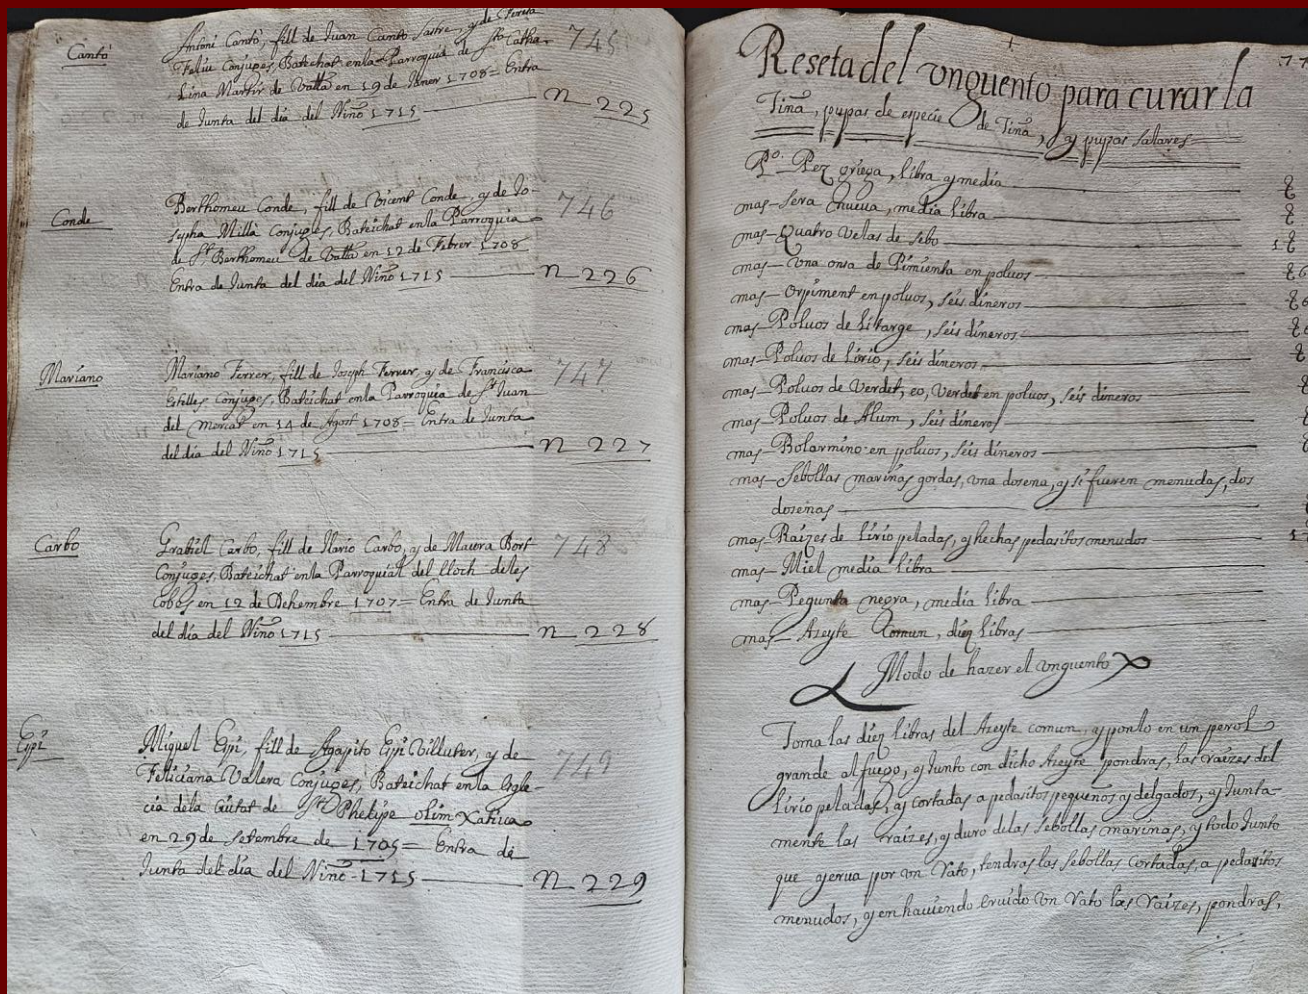 Cantó
Antoni Cantó, fill de Juan Cantó Sastre, y de Teresa
Feliu Conjuges, Bateichat en la Parroquia de Sta. Catha-
745
lina Martir de Vallª en 19 de Janer 1708 = Entra
de Junta del dia del Niño 1715
N 225
Conde
Berthomeu Conde, fill de Vicent Conde, y de Jo-
sepha Millà Conjuges, Bateichat en la Parroquia
746
de St. Berthomeu de Vallª en 12 de Febrer 1708
Entra de Junta del dia del Niño 1715
N 226
Mariano
Mariano Ferrer, fill de Joseph Ferrer, y de Francisca
Estelles Conjuges, Bateichat en la Parroquia de St. Juan
747
del Mercat en 14 de Agost 1708 = Entra de Junta
del dia del Niño 1715
N 227
Carbo
Grabiel Carbo, fill de Ilario Carbo, y de Maura Bort
748
Conjuges, Bateichat en la Parroquial del lloch de les
Cobes en 12 de Dehembre 1707 = Entra de Junta
del dia del Niño 1715
N 228
Espi
Miquel Espi, fill de Agapito Espi Villuter, y de
Feliciana Valera Conjuges, Bateichat en la Egle-
749
cia de la Ciutat de St. Phelipe olim Xativa
en 29 de Setembre de 1705 = Entra de
Junta del dia del Niño 1715
N 229
Reseta del vnguento para curar la
Tiña, pupas de especie de Tiña, y pupas sallares
Po. Pez griega, libra y media
mas Sera nueva, media libra
mas Quatro Vellas de sebo
mas vna onsa de Pimienta en polvos
mas Orpiment en poluos, seis dineros
mas Poluos de Litarge, seis dineros
mas Poluos de Lirio, seis dineros
mas Poluos de Verdet, eo, Verdet en poluos, seis dineros
mas Poluos de Alum, seis dineros
mas Bolarmino en poluos, seis dineros
mas Sebollas marinas gordas, vna dosena, y si fueren menudas, dos
dosenas
mas Raizes de Lirio peladas, y hechas pedasitos menudos
mas Miel media libra
mas Pegunta negra, media libra
mas Azeyte Comun, diez libras
Modo de hazer el vnguento
Toma las diez libras del Azeyte comun, y ponlo en un perol
grande al fuego, y Junto con dicho Azeyte pondras, las raizes del
Lirio peladas, y cortadas a pedasitos pequeños y delgados, y Junta-
mente las raizes, y duro delas sebollas marinas, y todo Junto
que yerua por vn Rato, tendras las sebollas cortadas, a pedasitos
menudos, y en hauiendo eruido vn Rato las Raizes, pondras,